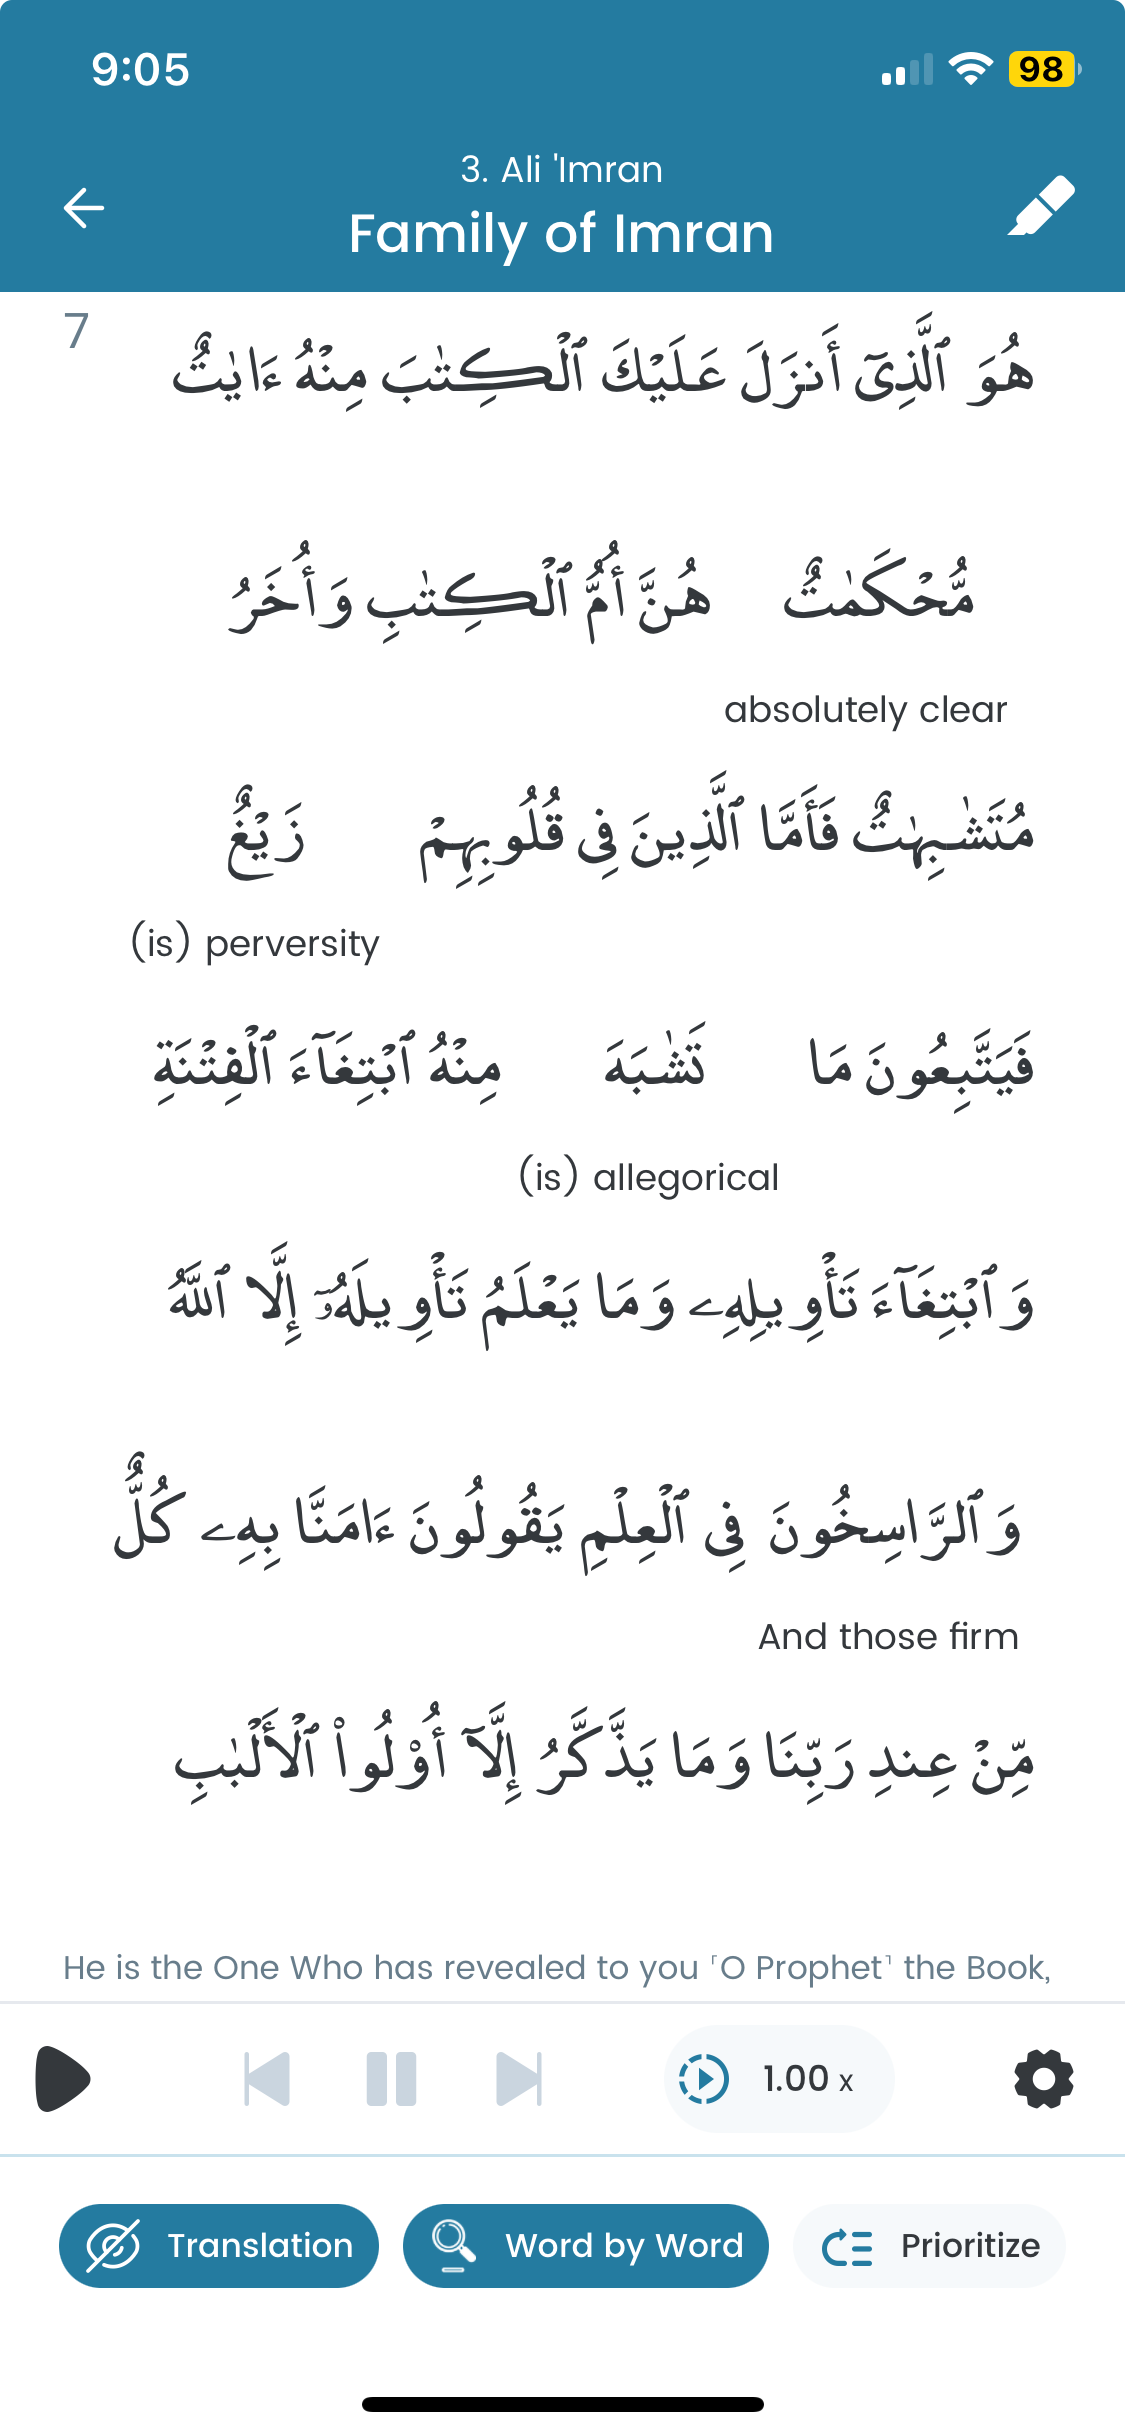 9:05
98
3. Ali 'Imran
Family of Imran
7
هُوَ ٱلَّذِىٓ أَنزَلَ عَلَيْكَ ٱلْكِتَٰبَ مِنْهُ ءَايَٰتٌ
مُّحْكَمَٰتٌ هُنَّ أُمُّ ٱلْكِتَٰبِ وَأُخَرُ
absolutely clear
مُتَشَٰبِهَٰتٌ فَأَمَّا ٱلَّذِينَ فِى قُلُوبِهِمْ زَيْغٌ
(is) perversity
فَيَتَّبِعُونَ مَا تَشَٰبَهَ مِنْهُ ٱبْتِغَآءَ ٱلْفِتْنَةِ
(is) allegorical
وَٱبْتِغَآءَ تَأْوِيلِهِۦ وَمَا يَعْلَمُ تَأْوِيلَهُۥٓ إِلَّا ٱللَّهُ
وَٱلرَّاسِخُونَ فِى ٱلْعِلْمِ يَقُولُونَ ءَامَنَّا بِهِۦ كُلٌّ
And those firm
مِّنْ عِندِ رَبِّنَا وَمَا يَذَّكَّرُ إِلَّآ أُو۟لُوا۟ ٱلْأَلْبَٰبِ
He is the One Who has revealed to you ˹O Prophet˺ the Book,
1.00 x
Translation
Word by Word
Prioritize